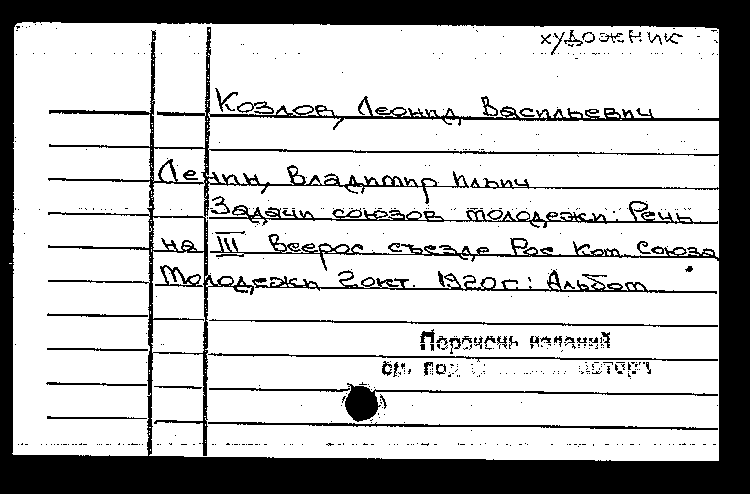 художник
Козлов, Леонид Васильевич
Ленин, Владимир Ильич
Задачи союзов молодежи: Речь
на III Всерос. съезде Рос. Ком. Союза
Молодежи 2 окт. 1920 г.: Альбом
Перечень изданий
см. под автора